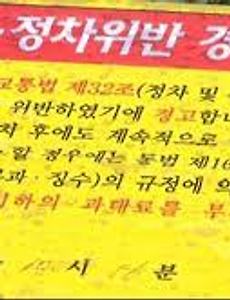 정차위반 경
교통법 제32조(정차 및
위반하였기에 경고합니
차 후에도 계속적으로
할 경우에는 동법 제16
과·징수)의 규정에 의
이하의 과태료를 부
시 분